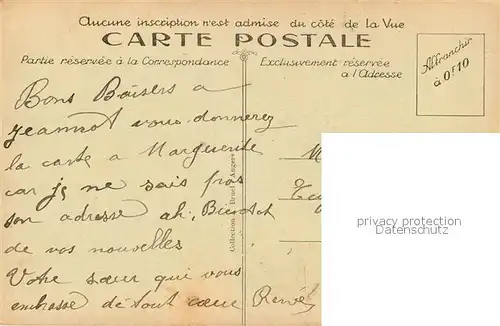 Aucune inscription n'est admise du côté de la Vue
CARTE POSTALE
Partie réservée à la Correspondance
Exclusivement réservée
à l'Adresse
Affranchir
à 0f10
Bons Baisers a
jeannot vous donnerez
la carte a Marguerite
car je ne sais pas
son adresse ah, Bientot
de vos nouvelles
Votre sœur qui vous
embrasse de tout cœur Renée
Collection Bruel Angers
privacy protection
Datenschutz